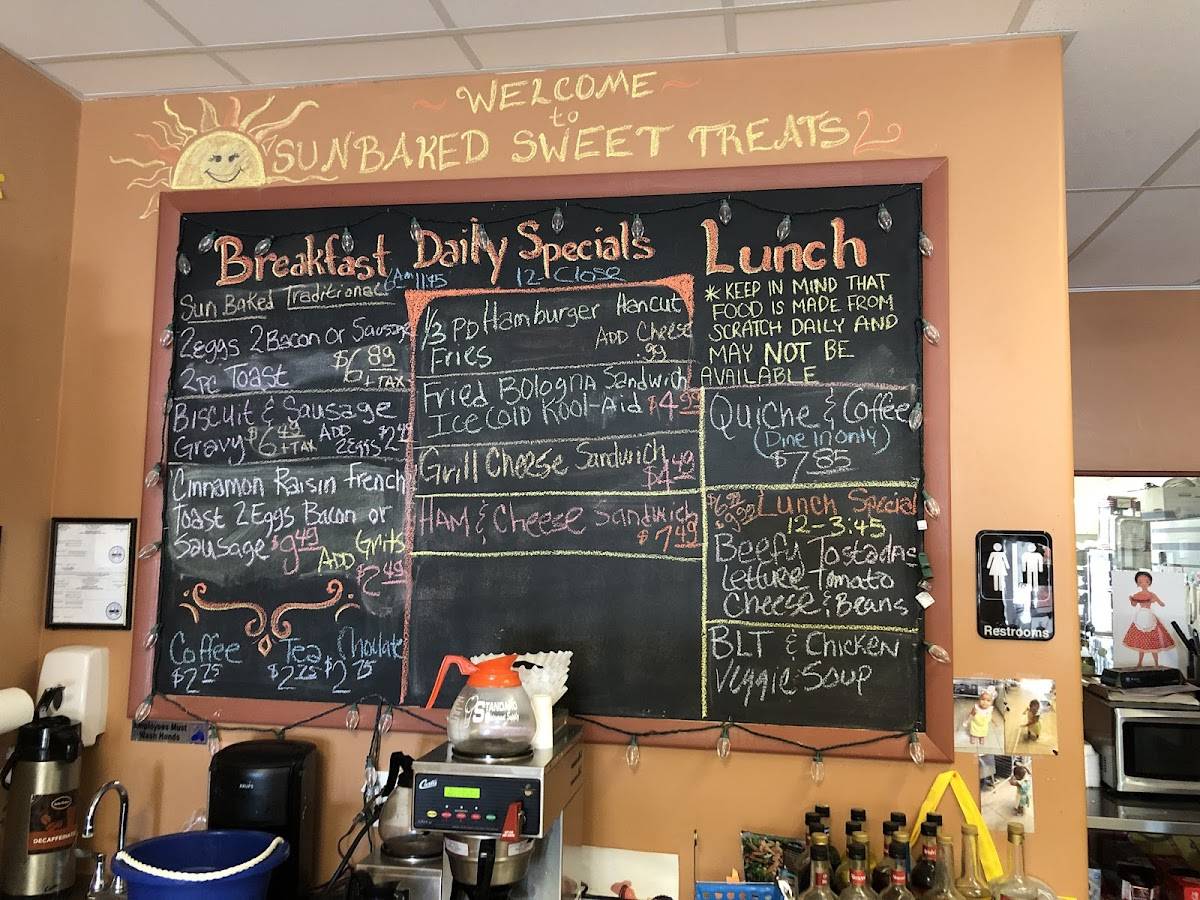 WELCOME
to
SUNBAKED SWEET TREATS
Breakfast
6Am 11:45
Sun Baked Traditional
2eggs 2Bacon or Sausage
$6.89
2pc Toast
+TAX
Biscuit & Sausage
Gravy $6.49 +TAX ADD 2Eggs $2.49
Cinnamon Raisin French
Toast 2Eggs Bacon or
Sausage $9.49
ADD Grits
$2.49
Coffee Tea Choclate
$2.75 $2.75 $2.75
Daily Specials
12-Close
1/3 PD Hamburger Hancut
Fries
ADD Cheese
.99
Fried Bologna Sandwich
Ice Cold Kool-Aid $4.99
Grill Cheese Sandwich
$4.49
HAM & Cheese Sandwich
$7.49
Lunch
* KEEP IN MIND THAT
FOOD IS MADE FROM
SCRATCH DAILY AND
MAY NOT BE
AVAILABLE
Quiche & Coffee
(Dine in only)
$7.85
Lunch Special
12-3:45
Beefy Tostadas
Lettuce Tomato
Cheese & Beans
BLT & Chicken
Veggie Soup
Restrooms
Employees Must
Wash Hands
STANDARD
KRUPS
Curtis
DECAFFEINATED